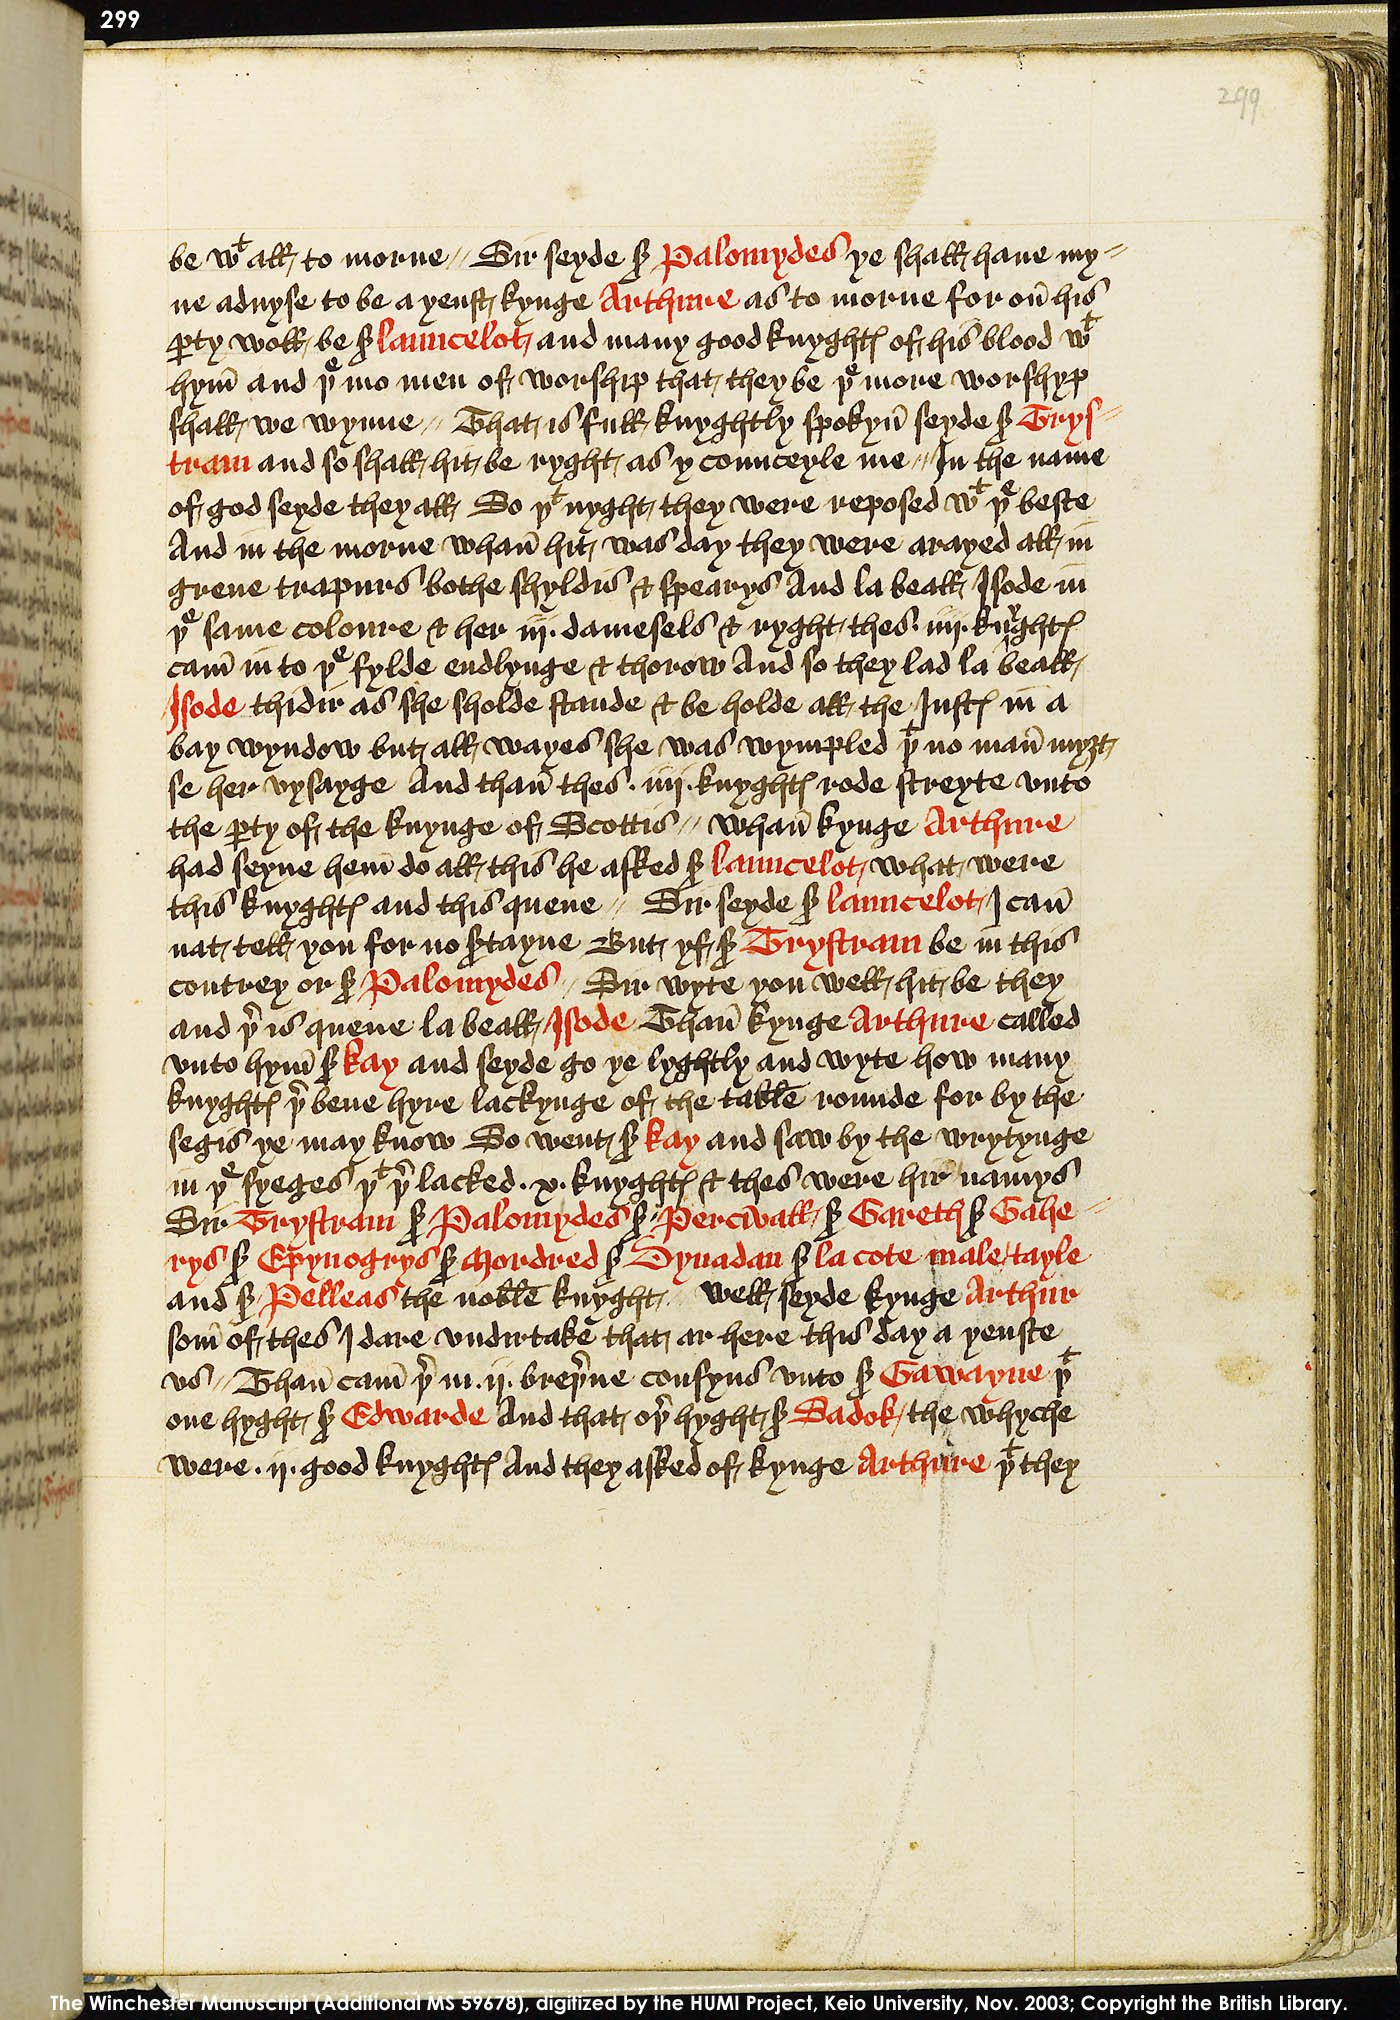 299
299
be wᵗ all to morne // Sir seyde sr Palomydes ye shall haue my=
ne aduyse to be a yenst kynge Arthure as to morne for on̄ his
ꝑty woll be sr launcelot and many good knyghtꝭ of his blood wᵗ
hym̄ and þᵉ mo men of worship that they be þᵉ more worshyp
shall we wynne // That is full knyghtly spokyn̄ seyde sr Trys=
tram and so shall hit be ryght as y counceyle me // In the name
of god seyde they all So yᵗ nyght they were reposed wᵗ þᵉ beste
And in the morne whan̄ hit was day they were arayed all in
grene trapurs bothe shyldis & spearys And la beall Isode in
þᵉ same coloure & her iij. damesels & ryght thes. iiij. knyghtꝭ
cam̄ in to þᵉ fylde endlynge & thorow And so they lad la beall
Isode thidir as she sholde stande & be holde all the Iustꝭ in a
bay wyndow but all wayes she was wympled þᵗ no man̄ myȝt
se her vysayge And than̄ thes. iiij. knyghtꝭ rode streyte vnto
the ꝑty of the knynge of Scottis // Whan̄ kynge Arthure
had seyne hem̄ do all this he asked sr launcelot what were
this knyghtꝭ and this quene // Sir seyde sr launcelot I can̄
nat tell you for no sꝑtayne But yf sr Trystram be in this
contrey or sr Palomydes // Sir wyte you well hit be they
and þr is quene la beall Isode Than̄ kynge Arthure called
vnto hym̄ sr kay and seyde go ye lyghtly and wyte how many
knyghtꝭ þr bene hyre lackynge of the table rounde for by the
segis ye may know So went sr kay and saw by the wrytynge
in þᵉ syeges yᵗ þr lacked. x. knyghtꝭ & thes were hir namys
Sir Trystram sr Palomydes sr Percivall sr Gareth sr Gahe=
rys sr Epynogrys sr Mordred sr Dynadan sr la cote male tayle
and sr Pelleas the noble knyght // Well seyde kynge Arthur
som̄ of thes I dare vndirtake that ar here this day a yenste
vs // Than̄ cam̄ þr in. ij. breþrne cosyns vnto sr Gawayne þᵗ
one hyght sr Edwarde And that oþr hyght sr Sadok the whyche
were. ij. good knyghtꝭ And they asked of kynge Arthure þᵗ they
The Winchester Manuscript (Additional MS 59678), digitized by the HUMI Project, Keio University, Nov. 2003; Copyright the British Library.